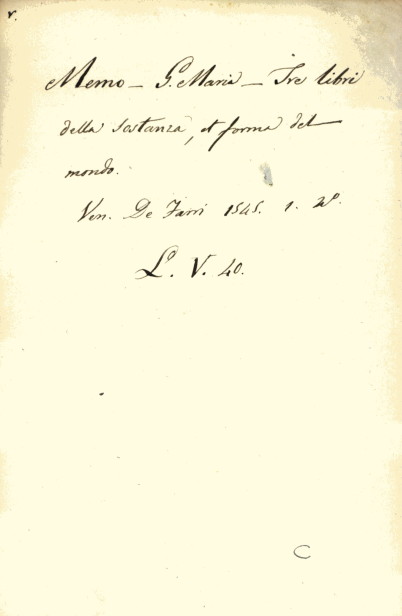 v.
Memo - G. Maria - Tre libri
della sostanza, et forma del
mondo.
Ven. De Farri 1545. 1. 4º.
L. V. 40.
C